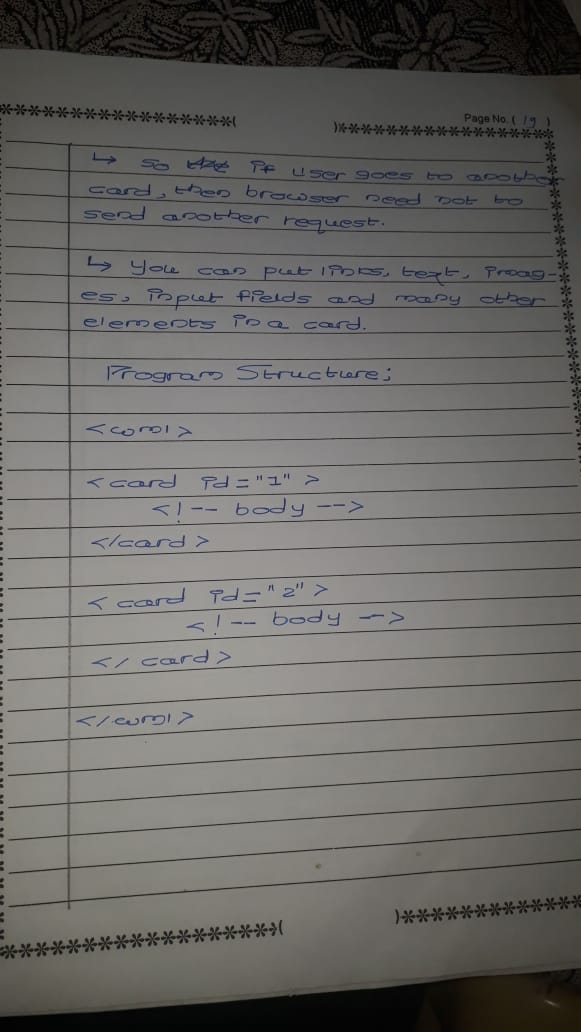 Page No. ( 19 )
↳ So if user goes to another
card, then browser need not to
send another request.
↳ You can put links, text, imag-
es, input fields and many other
elements in a card.
Program Structure;
<wml>
<card id="1" >
<!-- body -->
</card>
<card id="2">
<!-- body -->
</card>
</wml>